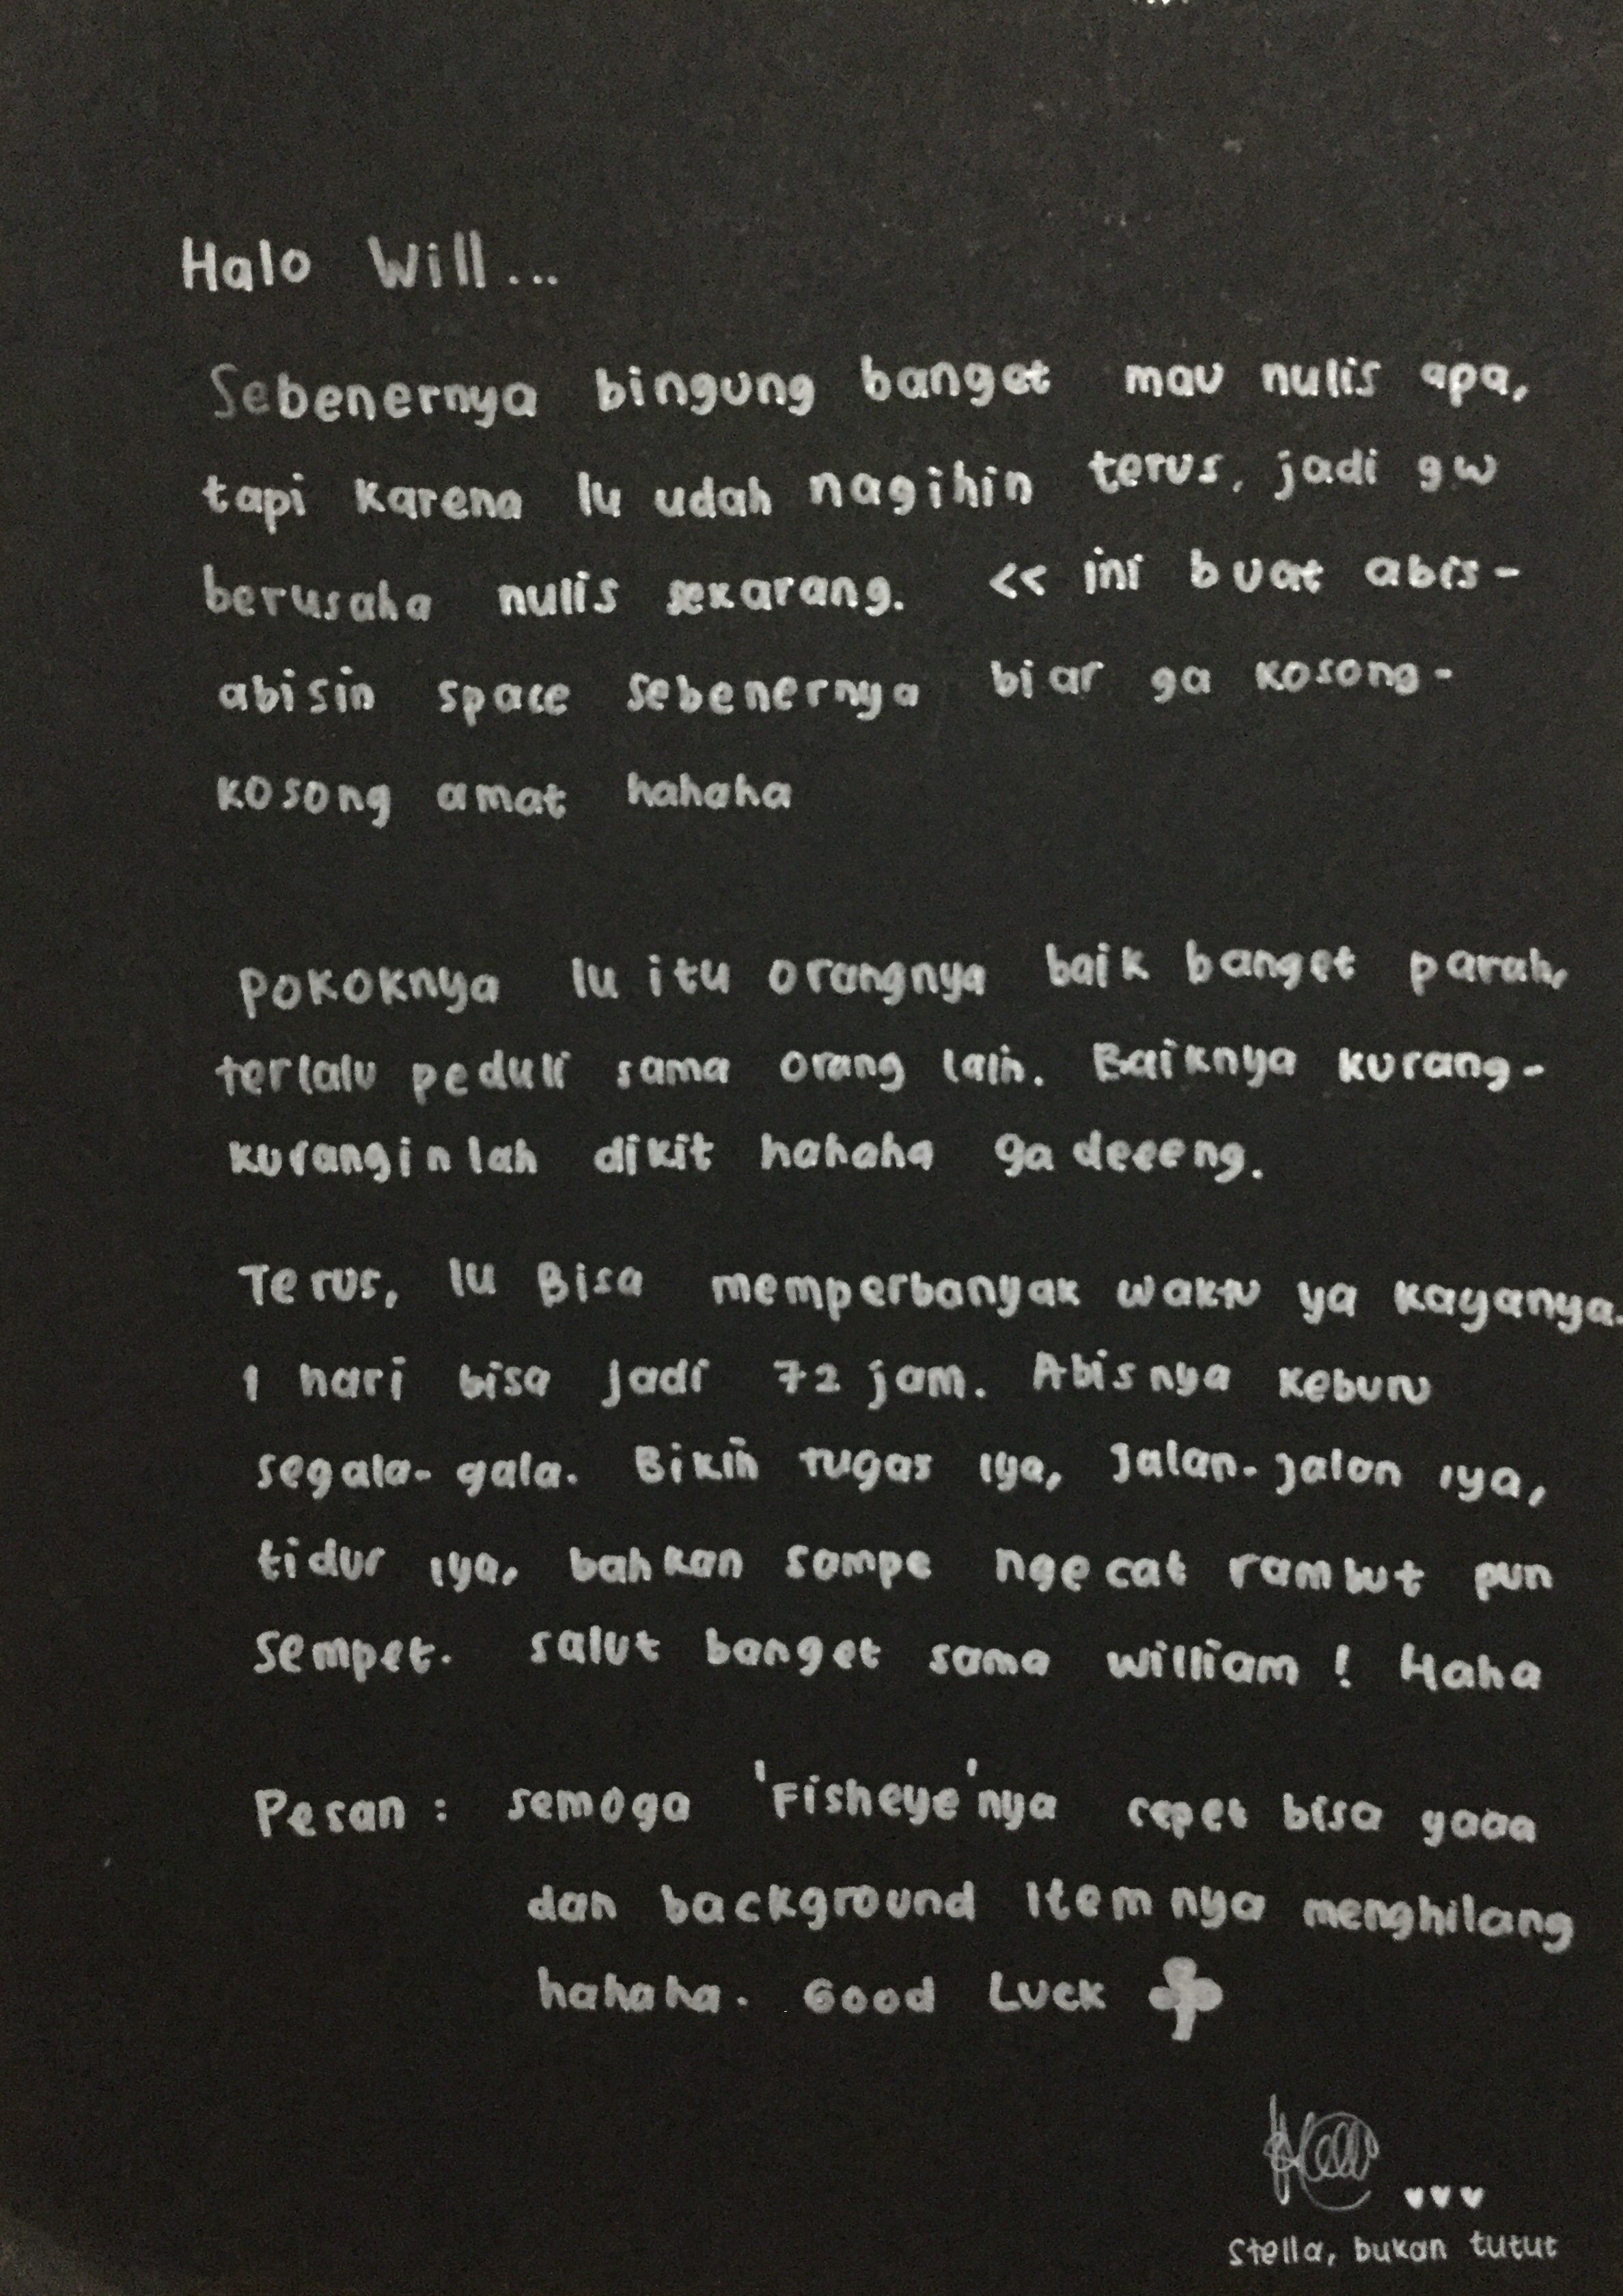 Halo Will...
Sebenernya bingung banget mau nulis apa,
tapi karena lu udah nagihin terus, jadi gw
berusaha nulis sekarang. << ini buat abis-
abisin space sebenernya biar ga kosong-
kosong amat hahaha
Pokoknya lu itu orangnya baik banget parah,
terlalu peduli sama orang lain. Baiknya kurang-
kuranginlah dikit hahaha ga deeeng.
Terus, lu Bisa memperbanyak waktu ya kayanya.
1 hari bisa jadi 72 jam. Abisnya keburu
segala-gala. Bikin tugas iya, Jalan-jalan iya,
tidur iya, bahkan sampe ngecat rambut pun
sempet. salut banget sama william! Haha
Pesan : semoga 'Fisheye'nya cepet bisa yaaa
dan background itemnya menghilang
hahaha. Good Luck
Stella, bukan tutut